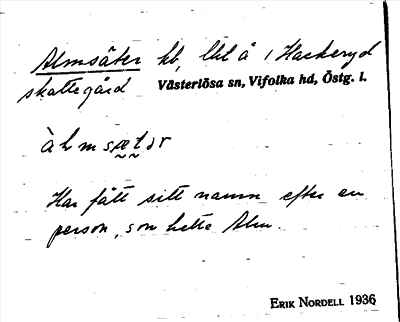 Almsäter hb, lht å / Hackeryd
skattegård Västerlösa sn, Vifolka hd, Östg. l.
àlmsætər
Har fått sitt namn efter en
person, som hette Alm.
ERIK NORDELL 1936